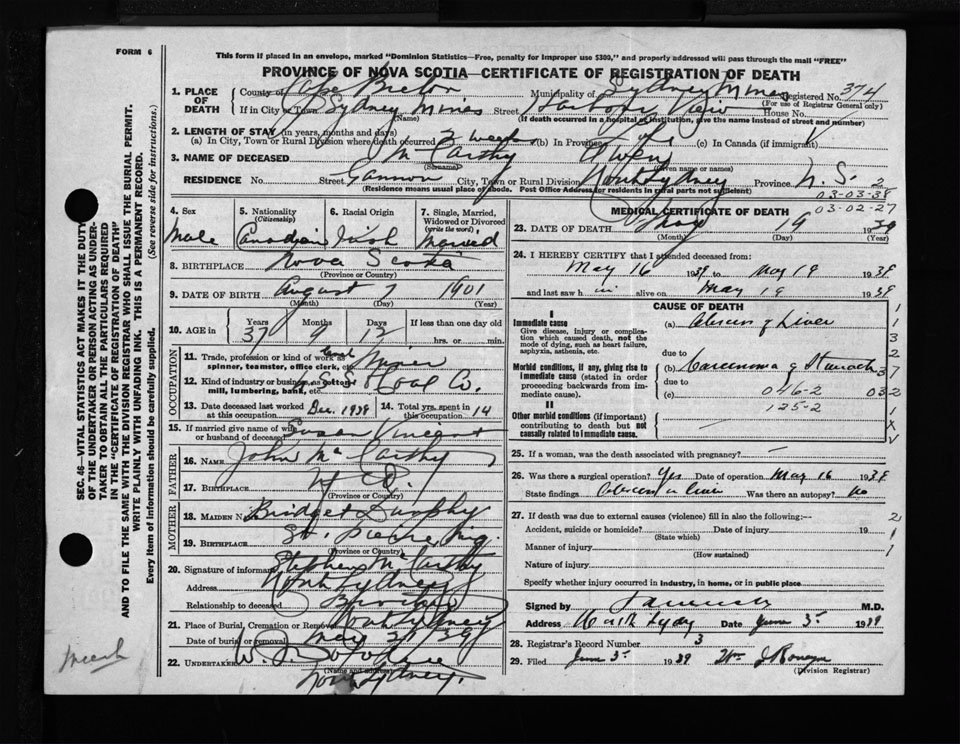 FORM 6
This form if placed in an envelope, marked "Dominion Statistics—Free, penalty for Improper use $300," and properly addressed will pass through the mail "FREE"
PROVINCE OF NOVA SCOTIA—CERTIFICATE OF REGISTRATION OF DEATH
1. PLACE OF DEATH
County of Cape Breton Municipality of Sydney Mines Registered No. 374
(For use of Registrar General only)
If in City or Town Sydney Mines Street Harbour View House No.
(Name) (If death occurred in a hospital or institution, give the name instead of street and number)
2. LENGTH OF STAY (in years, months and days)
(a) In City, Town or Rural Division where death occurred 2 weeks (b) In Province life (c) In Canada (if immigrant)
3. NAME OF DECEASED McCarthy Owen
(Surname) (Given name or names)
RESIDENCE No. Street Gannon City, Town or Rural Division North Sydney Province N. S. 2
(Residence means usual place of abode. Post Office Address for residents in rural parts not sufficient)
03-03-38
03-02-27
4. Sex Male
5. Nationality (Citizenship) Canadian
6. Racial Origin Irish
7. Single, Married, Widowed or Divorced (write the word) Married
8. BIRTHPLACE Nova Scotia
(Province or Country)
9. DATE OF BIRTH August 7 1901
(Month) (Day) (Year)
10. AGE in Years 37 Months 9 Days 12 If less than one day old hrs. or min.
OCCUPATION
11. Trade, profession or kind of work as spinner, teamster, office clerk, etc. Coal Miner
12. Kind of industry or business, as cotton mill, lumbering, bank, etc. Coal Co.
13. Date deceased last worked at this occupation Dec. 1938 14. Total yrs. spent in this occupation 14
15. If married give name of wife or husband of deceased Susan Vincent
FATHER
16. NAME John McCarthy
17. BIRTHPLACE
(Province or Country)
MOTHER
18. MAIDEN NAME Bridget Dunphy
19. BIRTHPLACE St. Pierre, Miq.
(Province or Country)
20. Signature of informant Stephen McCarthy
Address North Sydney
Relationship to deceased Brother
21. Place of Burial, Cremation or Removal North Sydney
Date of burial or removal May 21 39
22. Undertaker
(Name and address)
North Sydney.
MEDICAL CERTIFICATE OF DEATH
23. DATE OF DEATH May 19 1939
(Month) (Day) (Year)
24. I HEREBY CERTIFY that I attended deceased from:
May 16 1939 to May 19 1939
and last saw him alive on May 19 1939
CAUSE OF DEATH
I
Immediate cause
Give disease, injury or complication which caused death, not the mode of dying, such as heart failure, asphyxia, asthenia, etc.
(a) Abscess of Liver
due to
Morbid conditions, if any, giving rise to immediate cause (stated in order proceeding backwards from immediate cause).
(b) Carcinoma of Stomach
due to
(c) 046-2
125-2
II
Other morbid conditions (if important) contributing to death but not causally related to immediate cause.
25. If a woman, was the death associated with pregnancy? —
26. Was there a surgical operation? Yes Date of operation May 16 1939
State findings Abscess in liver Was there an autopsy? No
27. If death was due to external causes (violence) fill in also the following:—
Accident, suicide or homicide? Date of injury 19
(State which)
Manner of injury
(How sustained)
Nature of injury
Specify whether injury occurred in industry, in home, or in public place
Signed by M.D.
Address North Sydney Date June 3 1939
28. Registrar's Record Number 3
29. Filed June 3 1939
(Division Registrar)
SEC. 46—VITAL STATISTICS ACT MAKES IT THE DUTY OF THE UNDERTAKER OR PERSON ACTING AS UNDERTAKER TO OBTAIN ALL THE PARTICULARS REQUIRED IN THE "CERTIFICATE OF REGISTRATION OF DEATH" AND TO FILE THE SAME WITH THE DIVISION REGISTRAR WHO SHALL ISSUE THE BURIAL PERMIT.
WRITE PLAINLY WITH UNFADING INK. THIS IS A PERMANENT RECORD.
Every item of Information should be carefully supplied. (See reverse side for instructions.)